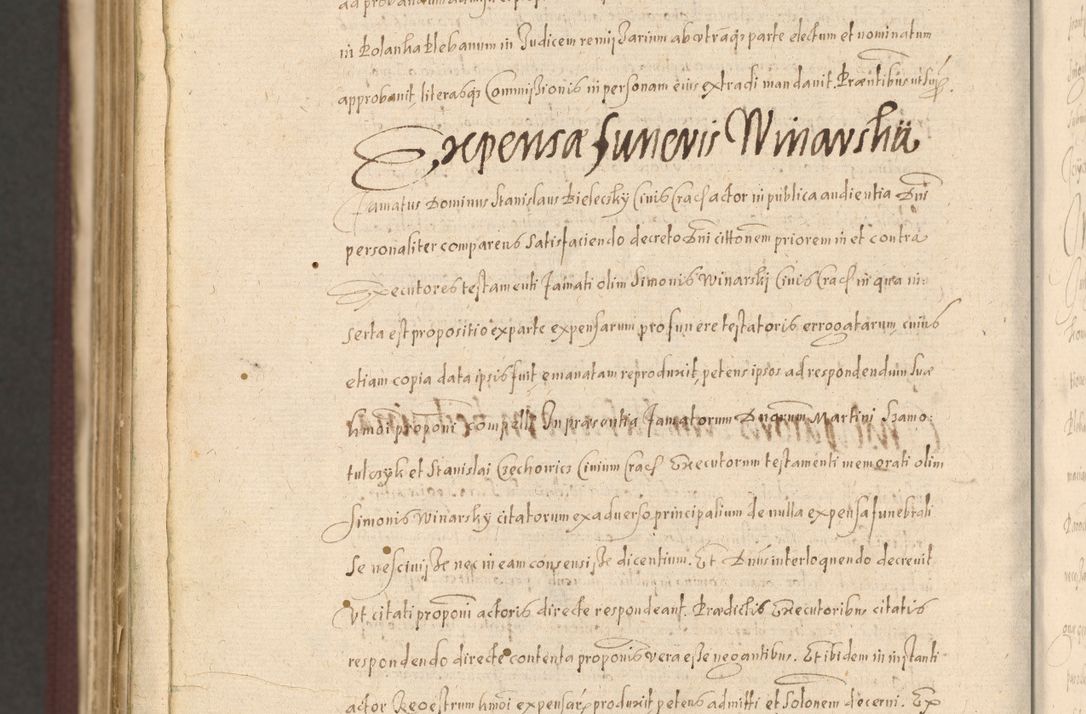 in Kolanka Plebanum in Judicem remissarium ab utraq3 parte electum et nominatum
approbavit, literasq3 Commissionis in personam eius extradi mandavit. Præntibus ut sup
Expensæ funeris Winarskii
Famatus Dominus Stanislaus Bieleczky Civis Crac actor in publica audientia Dni
personaliter comparens satisfaciendo decreto Dni cittonem priorem in et contra
Executores testamenti famati olim Simonis Winarskij Civis Crac in qua in:
serta est propositio ex parte expensarum pro funere testatoris errogatarum, cuius
etiam copia data ipsis fuit emanatam reproduxit, petens ipsos ad respondendum suæ
hmoi proponi compelli. In præsentia famatorum Dnorum Martini Szamo:
tulczyk et Stanislai Czechowicz Civium Crac Executorum testamenti memorati olim
Simonis Winarsky citatorum ex adverso principalium de nulla expensa funebrali
se nescivisse nec in eam consensisse dicentium. Et Dnus interloquendo decrevit
Vt citati proponi actoris directe respondeant. Prædictis Executoribus citatis
respondendo directe contenta proponis vera esse negantibus. Et ibidem in instanti
actor Regestrum hmoi expensar produxit petens admitti et solonem decerni. Ex